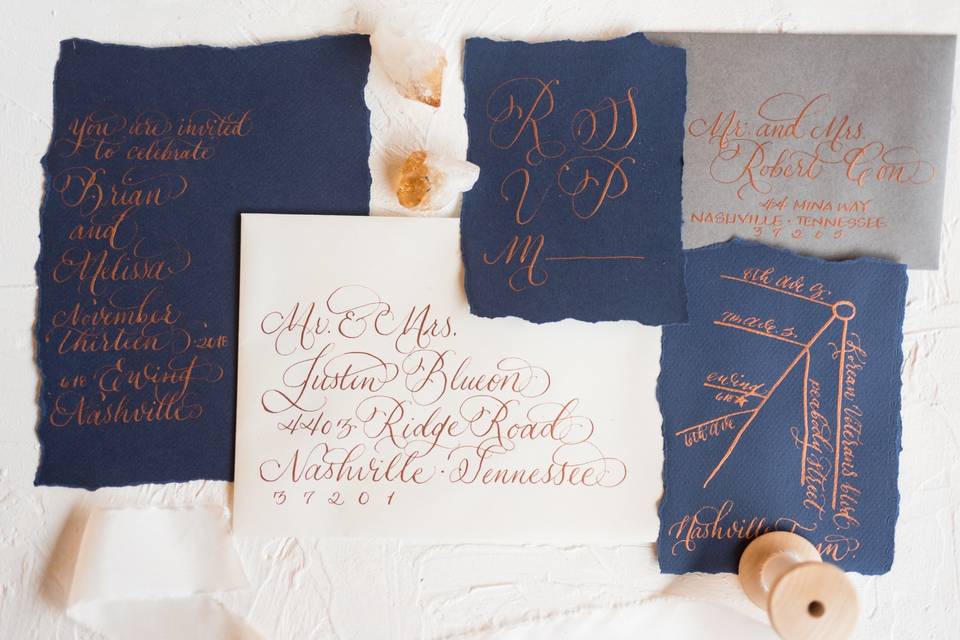 You are invited
to celebrate
Brian
and
Melissa
November
Thirteen · 2018
618 Ewing
Nashville
Mr. & Mrs.
Justin Blueon
4403 Ridge Road
Nashville · Tennessee
37201
R S
V P
M
Mr. and Mrs.
Robert Con
44 MINA WAY
NASHVILLE · TENNESSEE
37205
6th Ave S.
7th Ave. S.
ewing
618
6th Ave
peabody street
Korean Veterans blvd.
Nashville